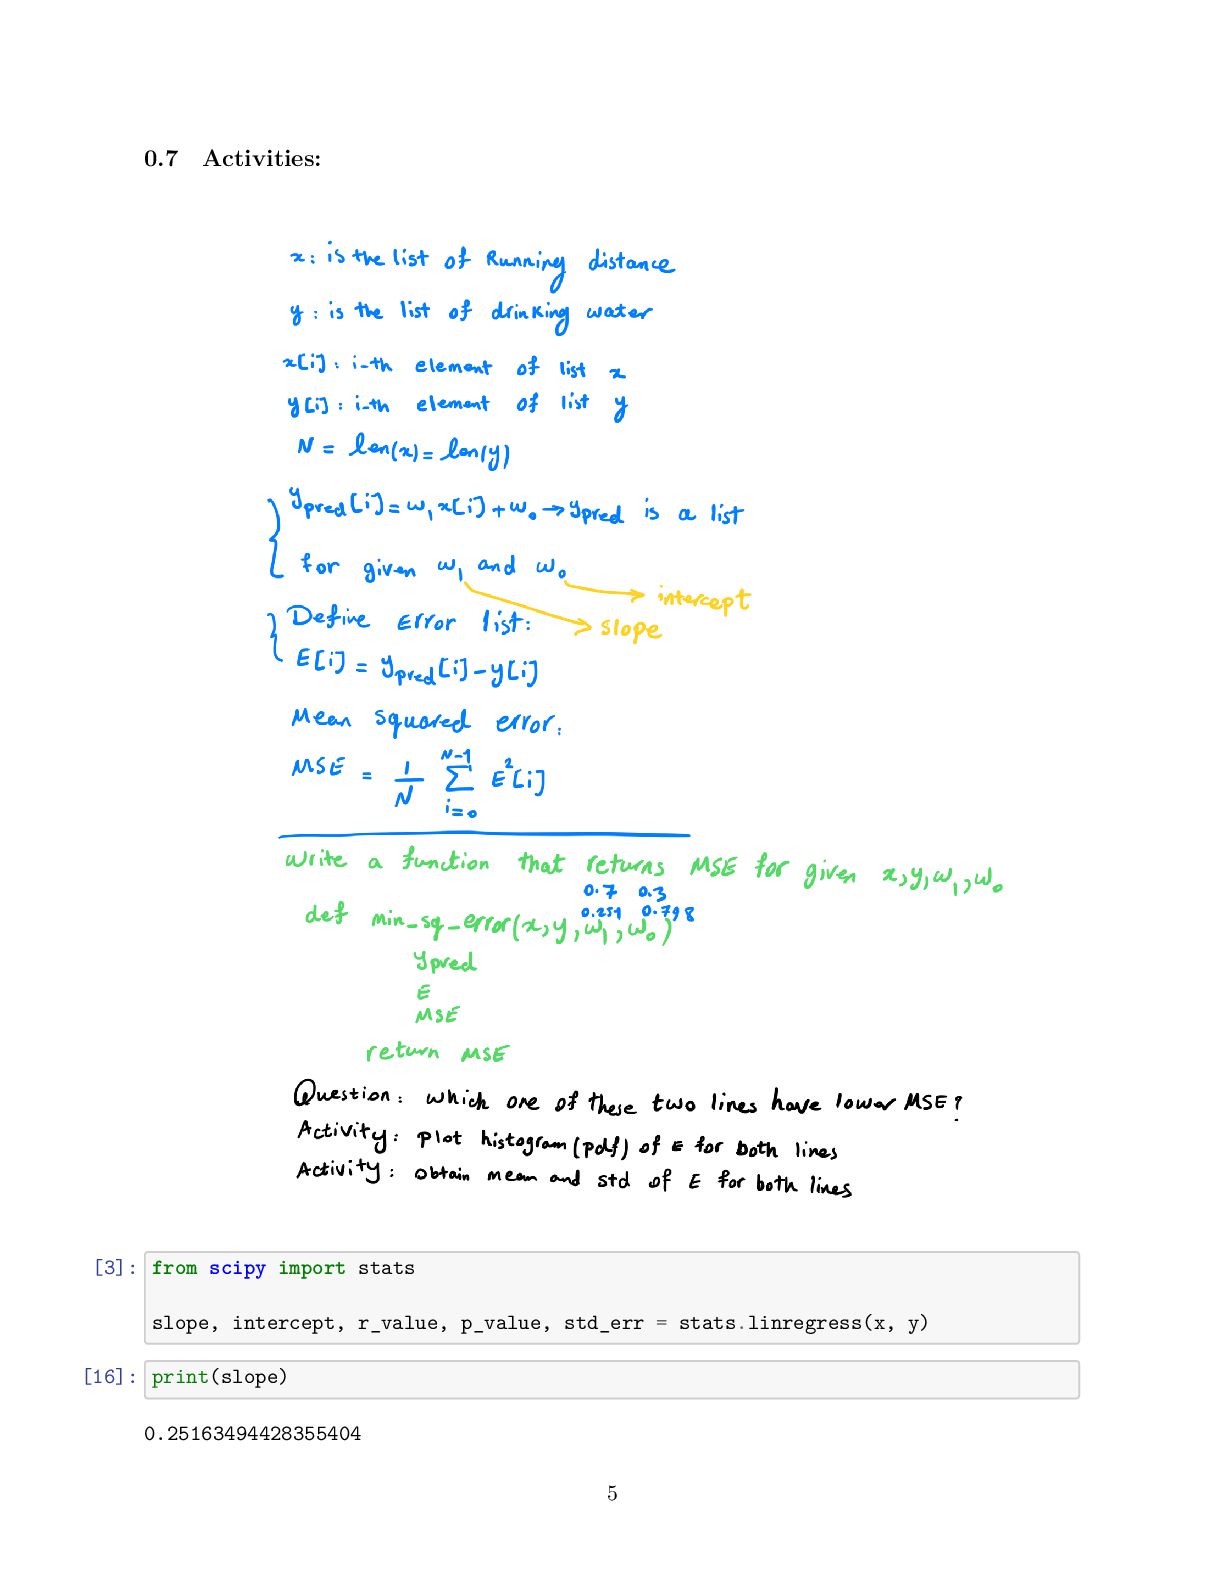 0.7 Activities:
x: is the list of Running distance
y: is the list of drinking water
x[i]: i-th element of list x
y[i]: i-th element of list y
N = len(x) = len(y)
y_pred[i] = w₁ x[i] + w₀ → y_pred is a list
for given w₁ and w₀
intercept
slope
Define Error list:
E[i] = y_pred[i] - y[i]
Mean squared error:
MSE = 1/N ∑_{i=0}^{N-1} E²[i]
write a function that returns MSE for given x, y, w₁, w₀
0.7 0.3
0.251 0.798
def min_sq_error(x, y, w₁, w₀)
y_pred
E
MSE
return MSE
Question: which one of these two lines have lower MSE?
Activity: plot histogram (pdf) of E for both lines
Activity: obtain mean and std of E for both lines
[3]: from scipy import stats
slope, intercept, r_value, p_value, std_err = stats.linregress(x, y)
[16]: print(slope)
0.25163494428355404
5